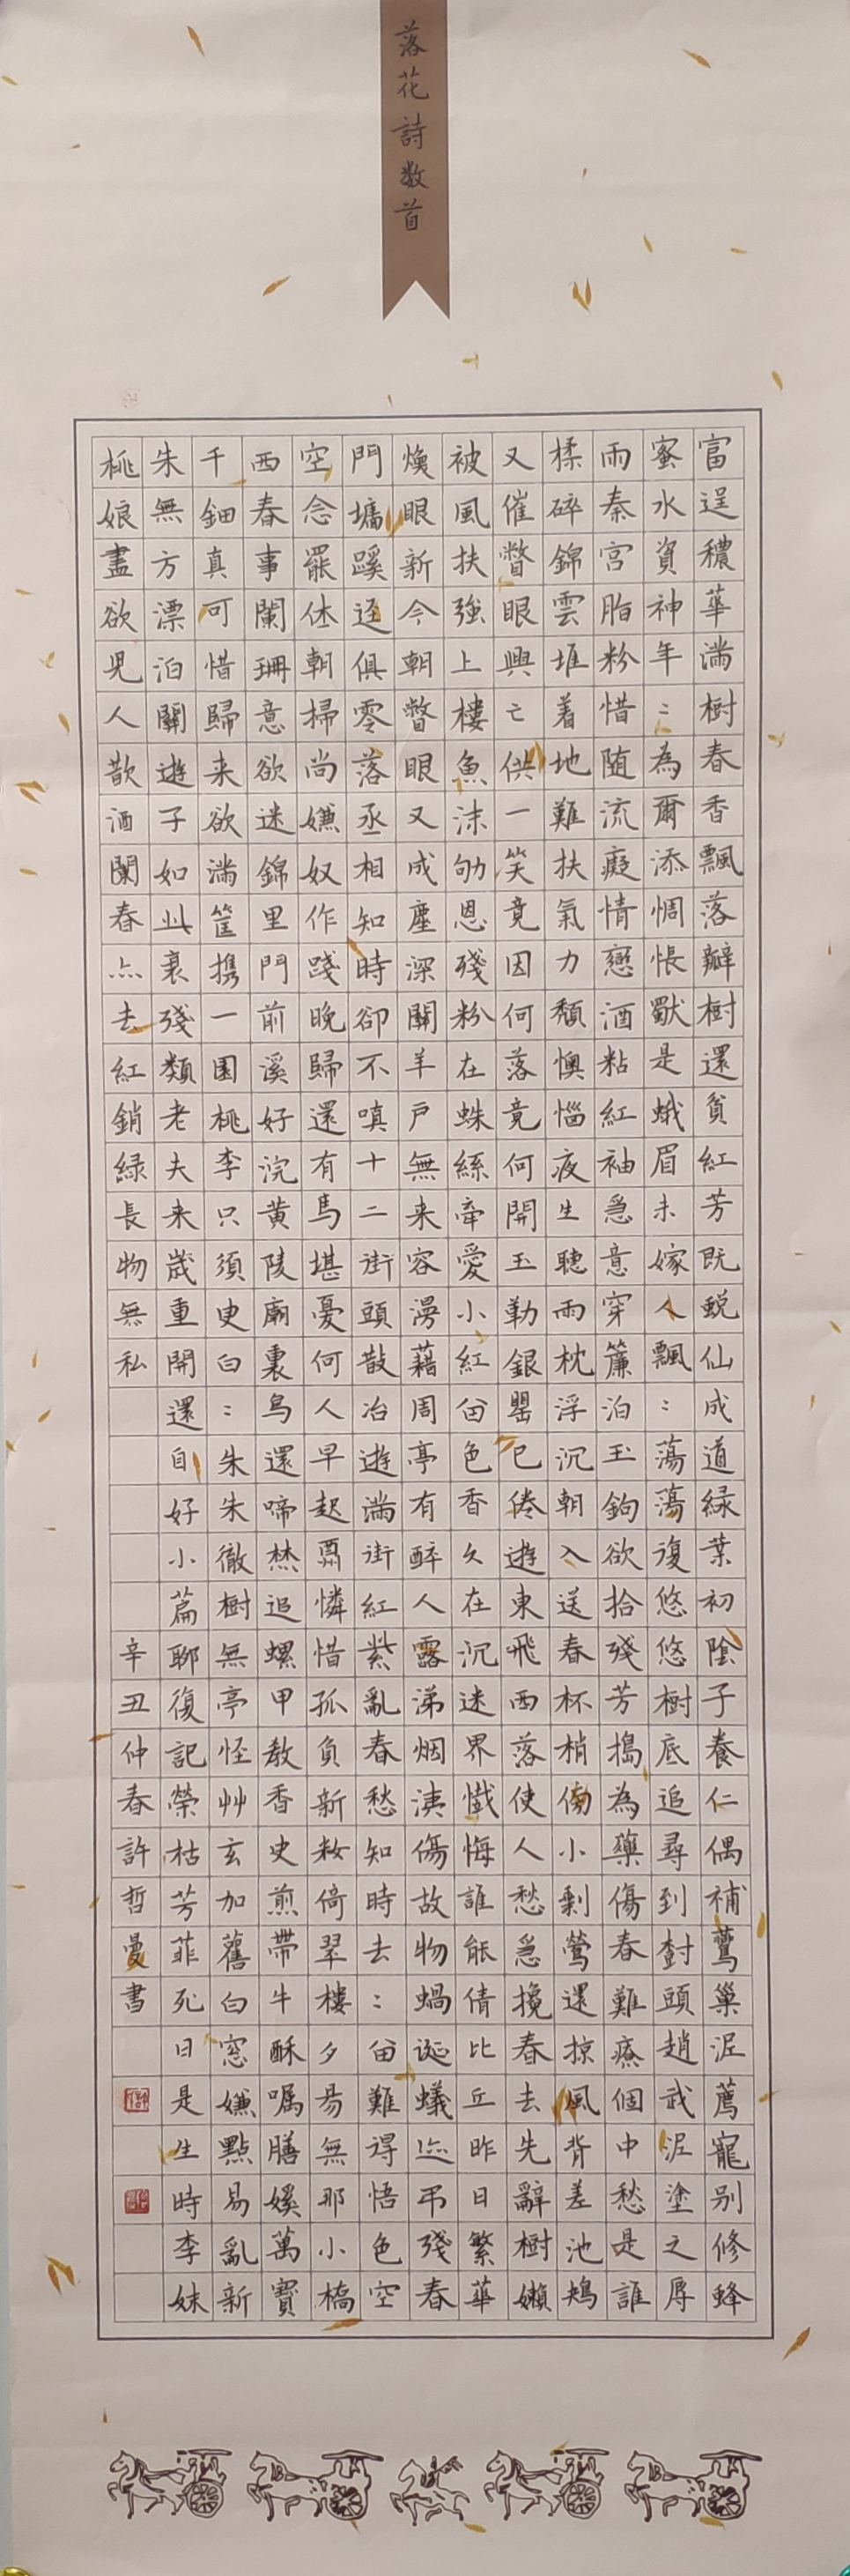 落花詩數首
富逞穠華滿樹春香飄落瓣樹還貧紅芳既蛻仙成道綠葉初陰子養仁偶補鶯巢泥薦寵別修蜂
蜜水資神年〻為爾添惆悵獸是蛾眉未嫁人飄〻蕩蕩復悠悠樹底追尋到樹頭趙武泥塗之辱
雨秦宮脂粉惜随流癡情戀酒粘紅袖急意穿簾泊玉鉤欲拾殘芳搗為藥傷春難療個中愁是誰
揉碎錦雲堆着地難扶氣力頹懊惱夜生聽雨枕浮沉朝入送春杯梢傍小剩鶯還掠風背差池鴂
又催瞥眼興亡供一笑竟因何落竟何開玉勒銀罌已倦遊東飛西落使人愁急攙春去先辭樹嬾
被風扶強上樓魚沫劬恩殘粉在蛛絲牽愛小紅留色香久在沉迷界懺悔誰能倩比丘昨日繁華
煥眼新今朝瞥眼又成塵深關羊戶無来容漫藉周亭有醉人露涕烟洟傷故物蝸涎蟻迹弔殘春
門墉蹊逕俱零落丞相知時卻不嗔十二街頭散冶遊滿街紅紫亂春愁知時去〻留難得悟色空
空念罷休朝掃尚嫌奴作踐晚歸還有馬堪憂何人早起酷憐惜孤負新妝倚翠樓夕昜無那小橋
西春事闌珊意欲迷錦里門前溪好浣黃陵廟裏鳥還啼焚追螺甲教香史煎帶牛酥囑膳媛萬寶
千鈿真可惜歸来欲滿筐攜一園桃李只須臾白〻朱朱徹樹無亭怪艸玄加舊白窓嫌點易亂新
朱無方漂泊關遊子如此衰殘類老夫来歲重開還自好小篇聊復記榮枯芳菲死日是生時李妹
桃娘盡欲兒人散酒闌春亦去紅銷綠長物無私
辛丑仲春許哲曼書